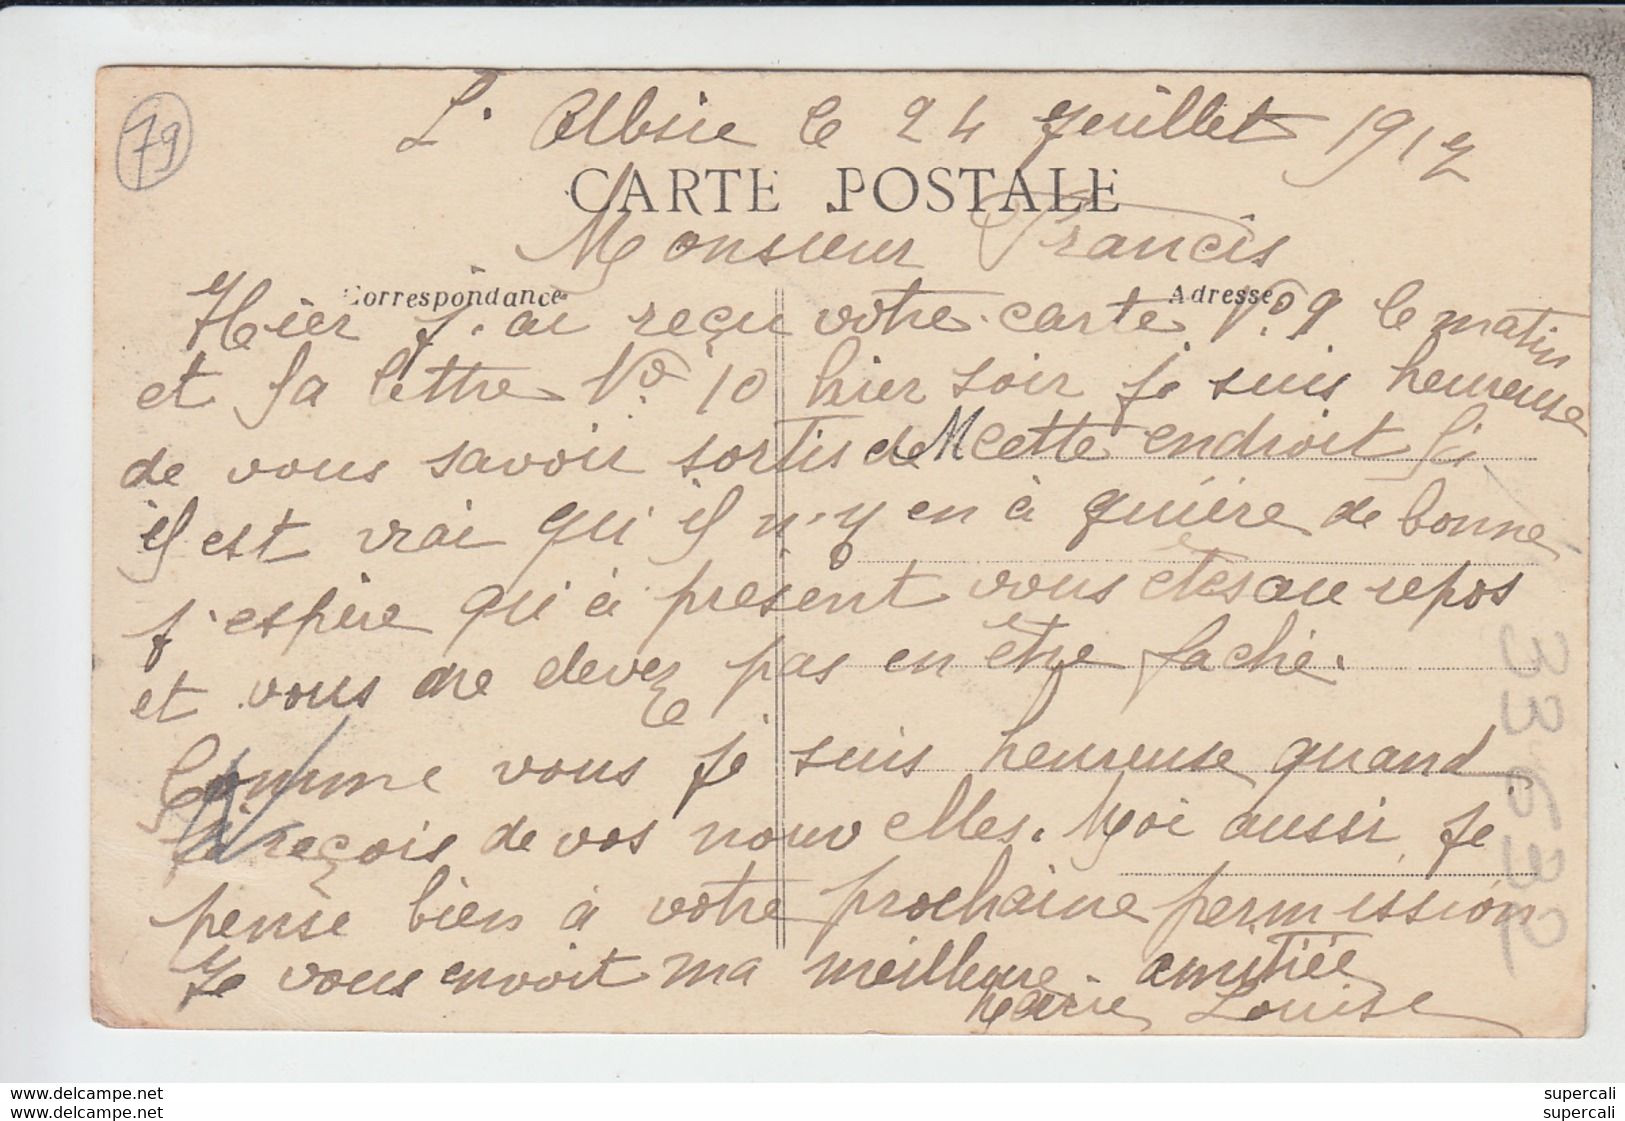 79
L'Absie le 24 Juillet 1917
CARTE POSTALE
Monsieur Francis
Correspondance
Adresse
Hier j'ai reçu votre carte No 9 le matin
et la lettre No 10 hier soir je suis heureuse
de vous savoir sortis de cette endroit là
il est vrai qui il n'y en à guière de bonne
j'espère qui à présent vous êtes au repos
et vous ne devez pas en être faché.
Comme vous je suis heureuse quand
je reçois de vos nouvelles. Moi aussi je
pense bien à votre prochaine permission
Je vous envoit ma meilleure amitiée
Marie Louise
33639
supercali
delcampe.net
delcampe.net
supercali